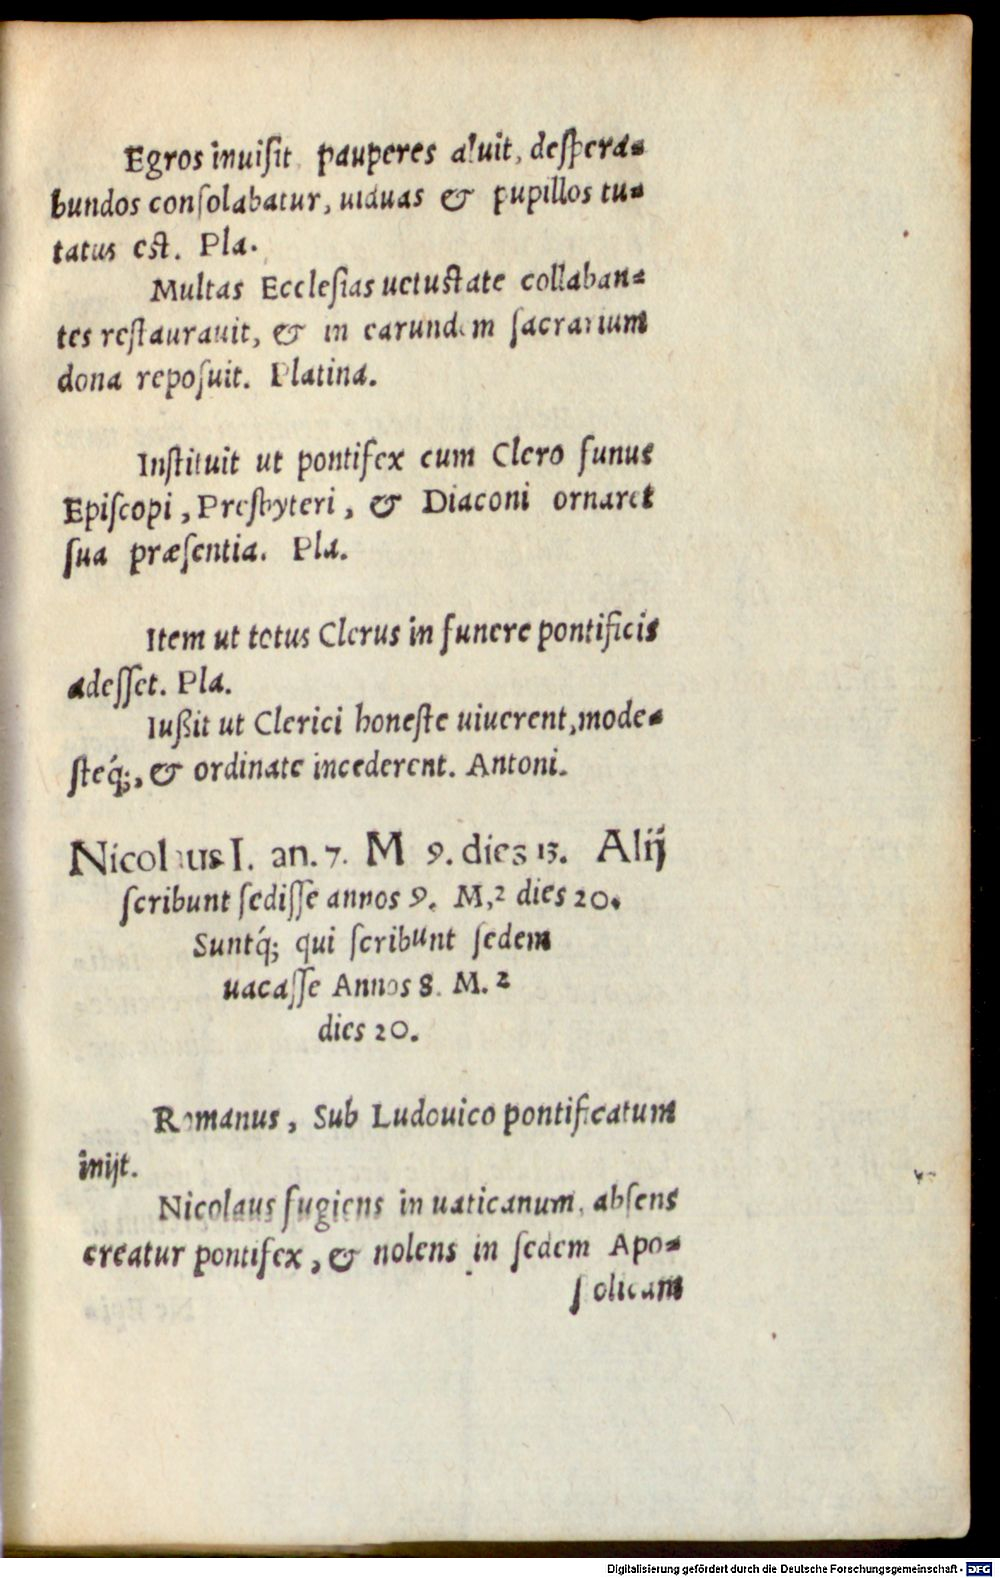 Egros inuiſit pauperes aluit, deſpera-
bundos conſolabatur, uiduas & pupillos tu-
tatus eſt. Pla.
Multas Eccleſias uetuſtate collaban-
tes reſtaurauit, & in earundem ſacrarium
dona repoſuit. Platina.
Inſtituit ut pontifex cum Clero funus
Epiſcopi, Preſbyteri, & Diaconi ornaret
ſua præſentia. Pla.
Item ut totus Clerus in funere pontificis
adeſſet. Pla.
Iußit ut Clerici honeſte uiuerent, mode-
ſteq́;, & ordinate incederent. Antoni.
Nicolaus I. an. 7. M 9. dies 13. Alij
ſcribunt ſediſſe annos 9. M, 2 dies 20.
Suntq́; qui ſcribunt ſedem
uacaſſe Annos 8. M. 2
dies 20.
Romanus, Sub Ludouico pontificatum
inijt.
Nicolaus fugiens in uaticanum, abſens
creatur pontifex, & nolens in ſedem Apo-
ſtolicam
Digitalisierung gefördert durch die Deutsche Forschungsgemeinschaft - DFG